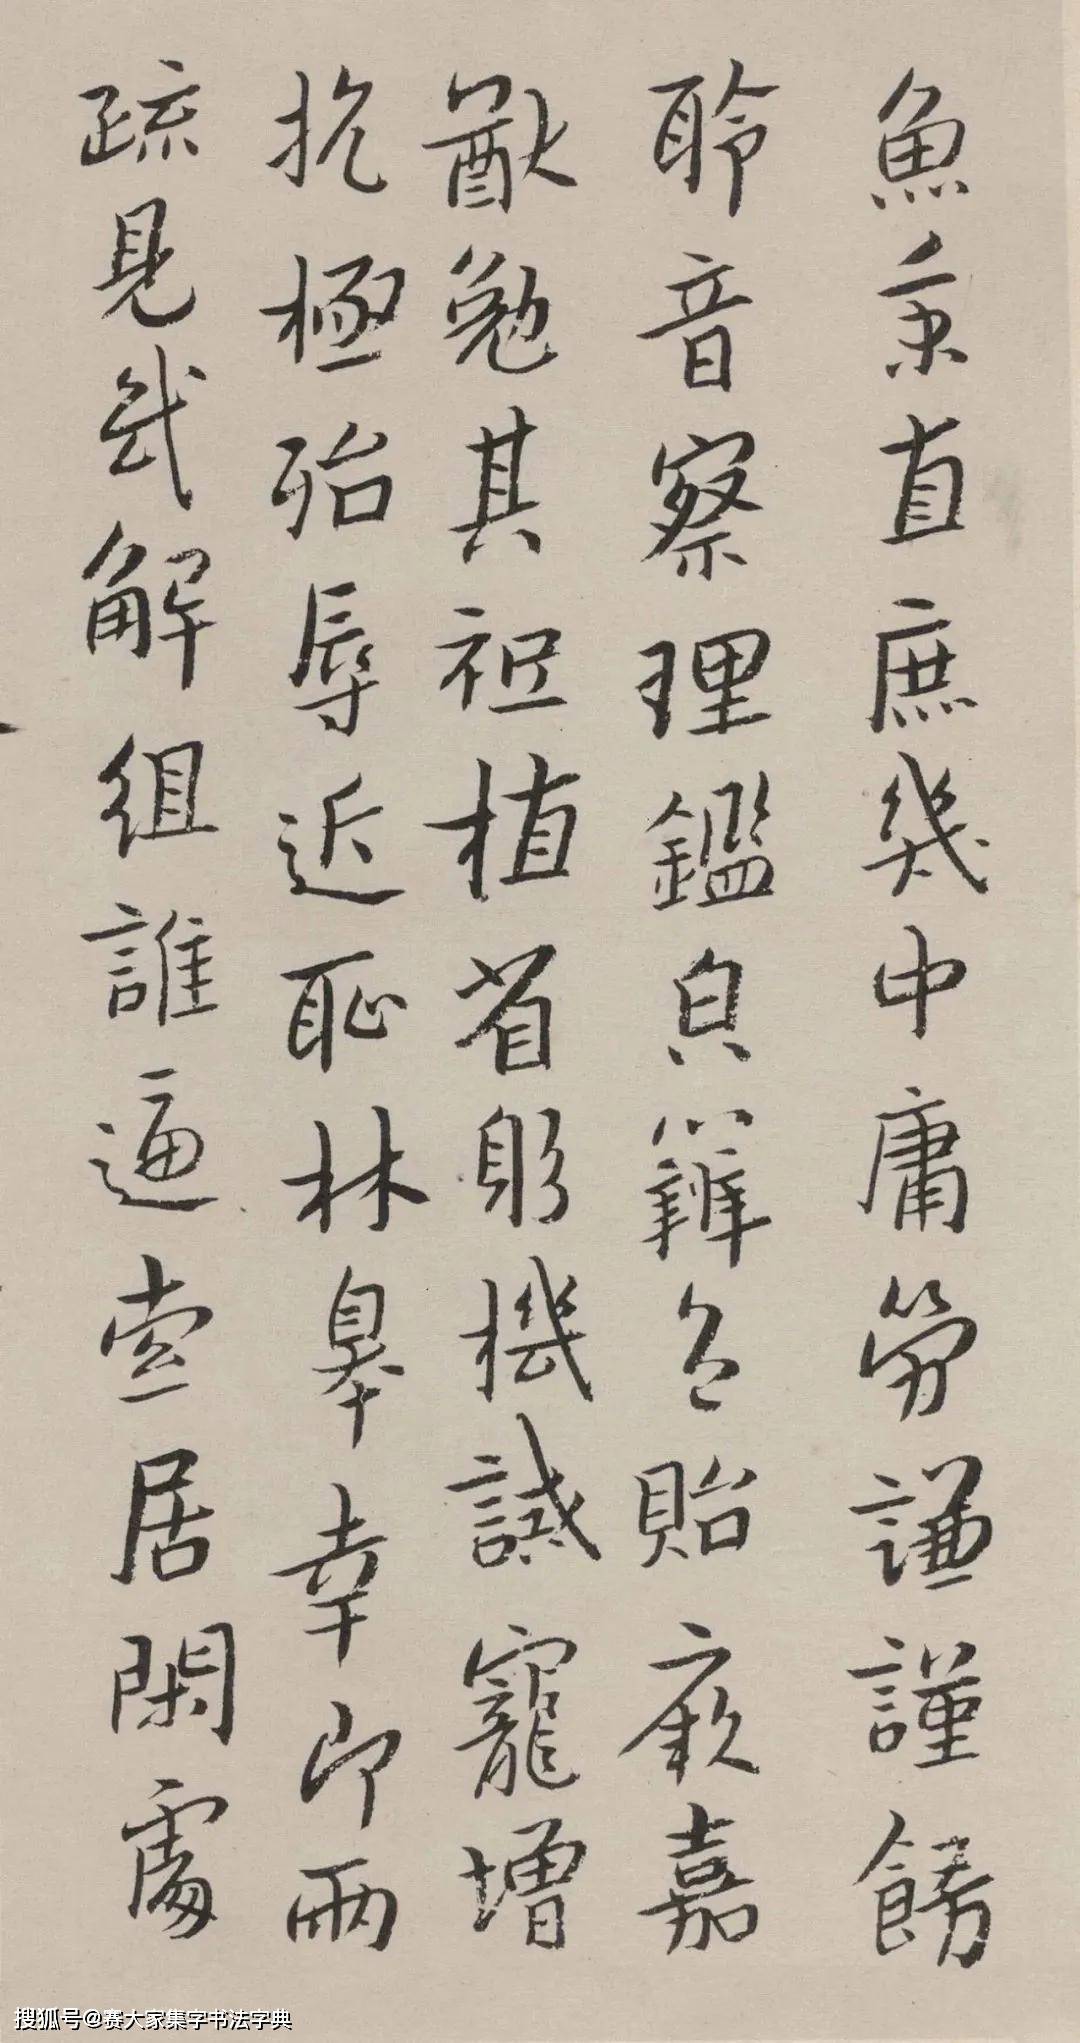 魚秉直庶幾中庸勞謙謹飭
聆音察理鑑皃辯色貽厥嘉
猷勉其祗植省躬機誡寵增
抗極殆辱近恥林皋幸即兩
疏見機解組誰逼索居閑處
搜狐号@赛大家集字书法字典